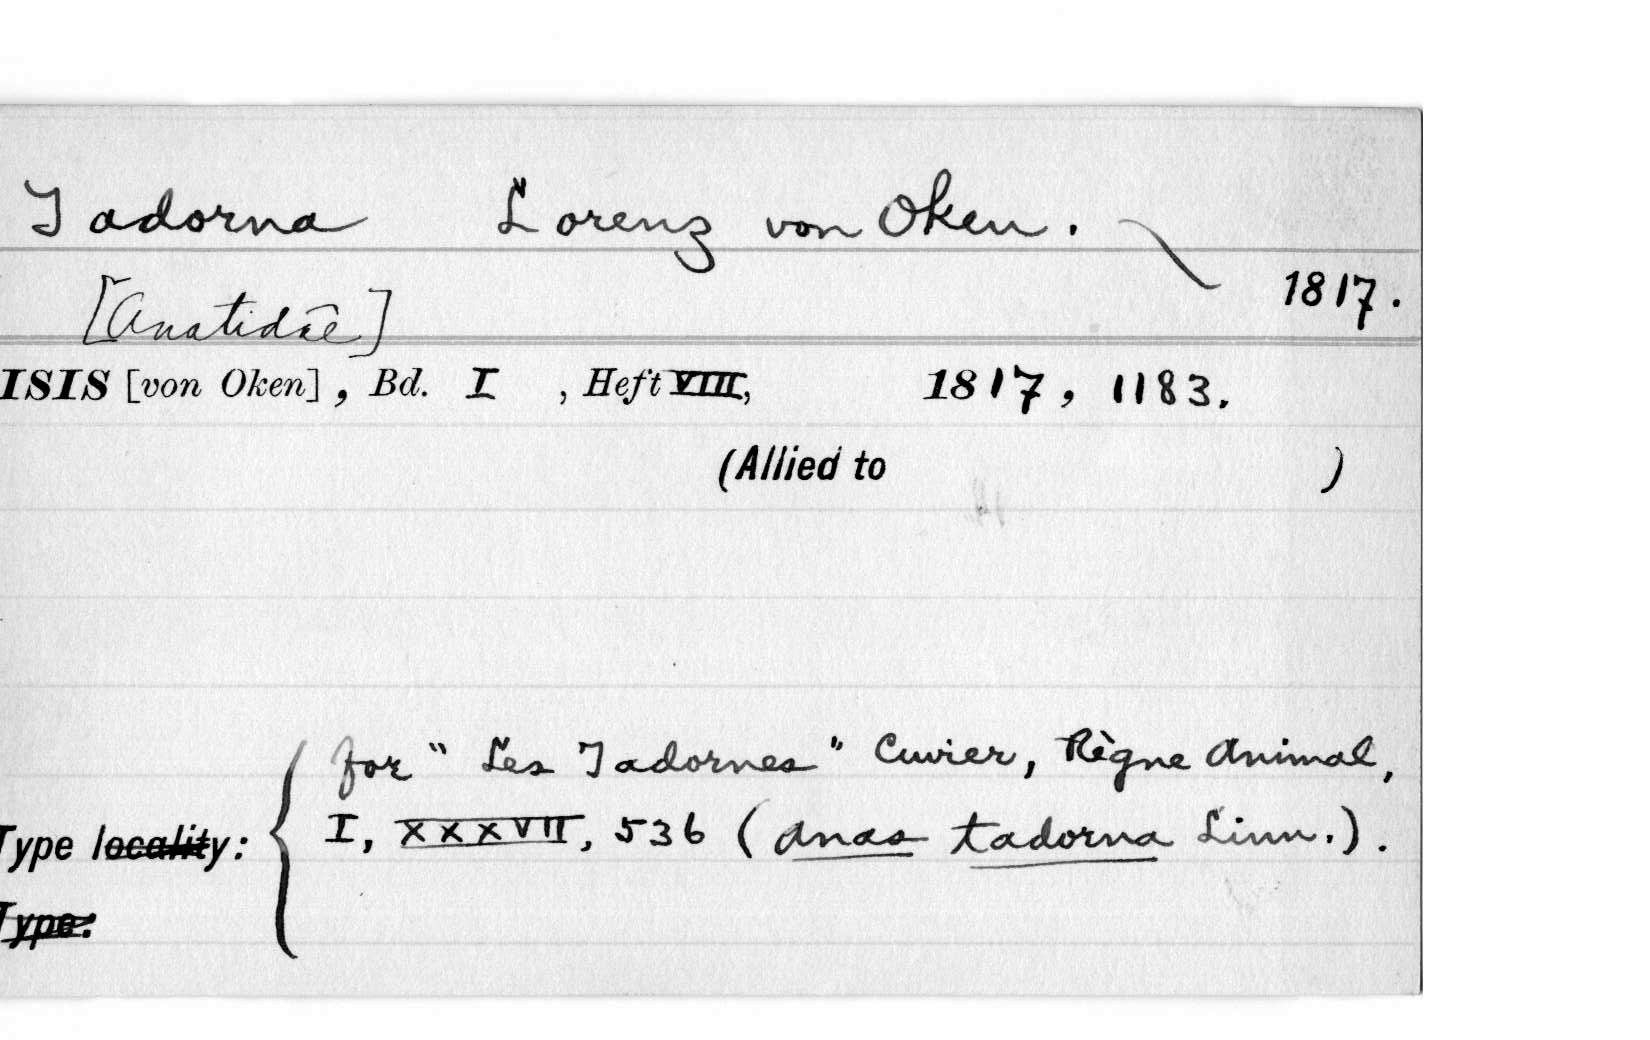 Tadorna Lorenz von Oken.
1817.
[Anatidae]
ISIS [von Oken], Bd. I , Heft VIII, 1817, 1183.
(Allied to )
for "Les Tadornes" Cuvier, Règne Animal,
I, XXXVII, 536 (Anas tadorna Linn.).
Type locality:
Type: